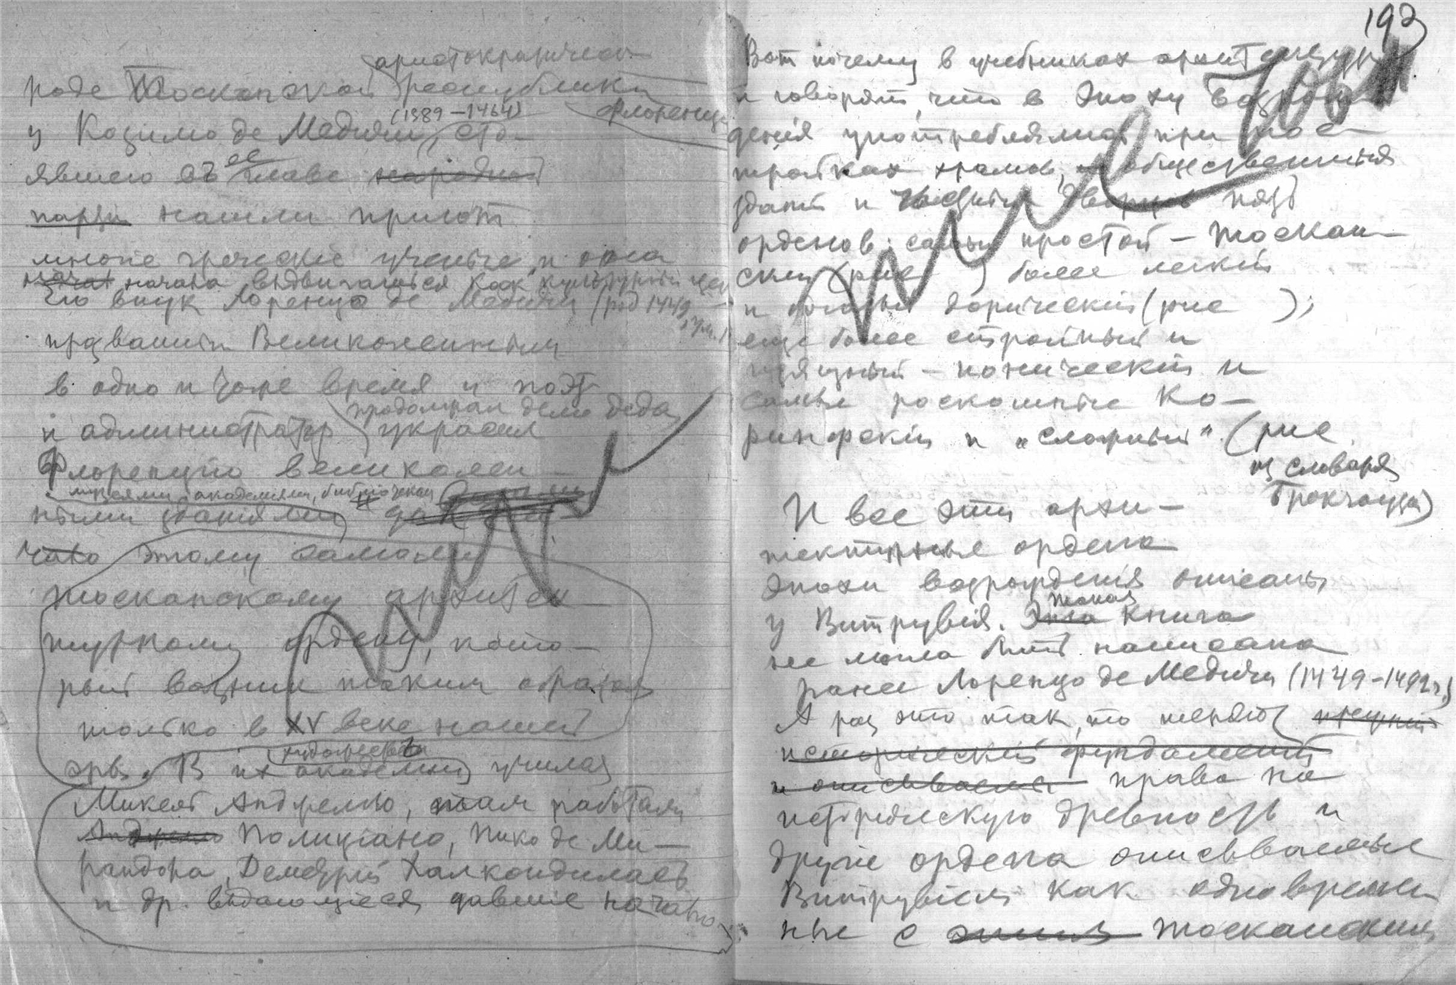 аристократической
роде Тосканской республики
Флоренции
(1389–1464)
у Козимо де Медичи, сто-
явшего въ ее главе народной
парти нашли приют
многие греческие ученые и она
начала выдвигаться как культурный
Его внук Лоренцо де Медичи (род 1449
прозванный Великолепным
в одно и тоже время и поэт
продолжал дело деда
и администратор украсил
Флоренцию великолеп-
музеями, академиями, библиотекой
ными зданиями и дал
этому самому
тосканскому архитек-
турному ордену, кото-
рый возник таким образом
только в XV веке нашей
эры. В их академии учился
Микель Анджело, там работали
Полициано, Пико де Ми-
рандола, Деметрий Халкондилас
и др. выдающиеся давшие начало
192
Вот почему в учебниках архитектуры
и говорят, что в Эпоху Возрож-
дения употреблялись при пос-
тройках храмов, общественных
зданий и дворцов пять
орденов: самый простой – тоскан-
ский (рис ) более легкий
и дорический (рис );
еще более стройный и
изящный – ионический и
самые роскошные Ко-
ринфский и "сложный". (рис.
из словаря
Брокгауза)
И все эти архи-
тектурные ордена
эпохи возрождения описаны
у Витрувия. Такая книга
не могла быть написана
ранее Лоренцо де Медичи (1449–1492г.)
А раз это так, то теряют
исторический фундамент
и описываемые право на
историческую древность и
другие ордена описываемые
Витрувием как одновремен
ные с этим тосканским